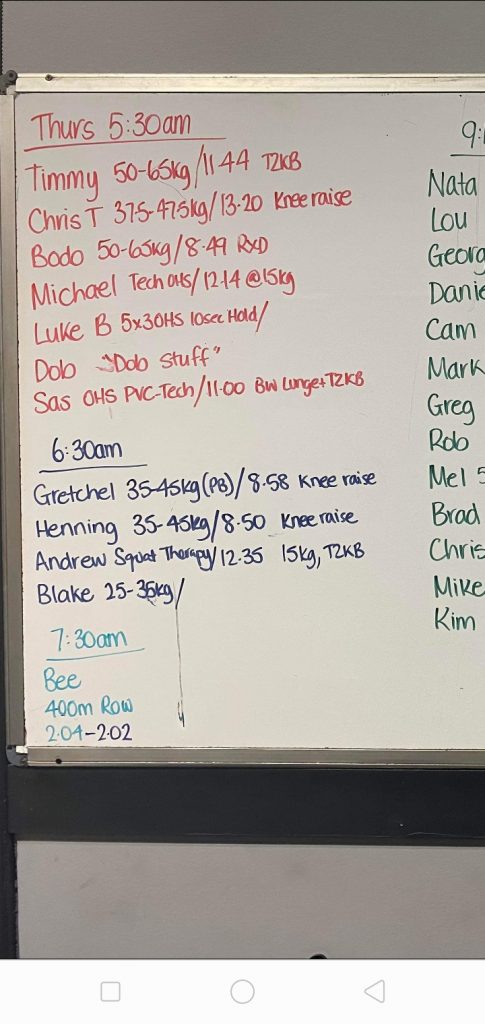 Thurs 5:30am
Timmy 50-65kg/11.44 T2KB
Chris T 37.5-47.5kg/13.20 Knee raise
Bodo 50-65kg/8.49 RXD
Michael Tech OHS/12.14 @15kg
Luke B 5x3OHS 10sec Hold/
Dob "Dob Stuff"
Sas OHS PVC-Tech/11.00 BW Lunge+T2KB
6:30am
Gretchel 35-45kg(PB)/8.58 Knee raise
Henning 35-45kg/8.50 Knee raise
Andrew Squat Therapy/12.35 15kg, T2KB
Blake 25-35kg/
7:30am
Bee
400m Row
2.04-2.02
9:
Nata
Lou
Georg
Danie
Cam
Mark
Greg
Rob
Mel 5
Brad
Chris
Mike
Kim